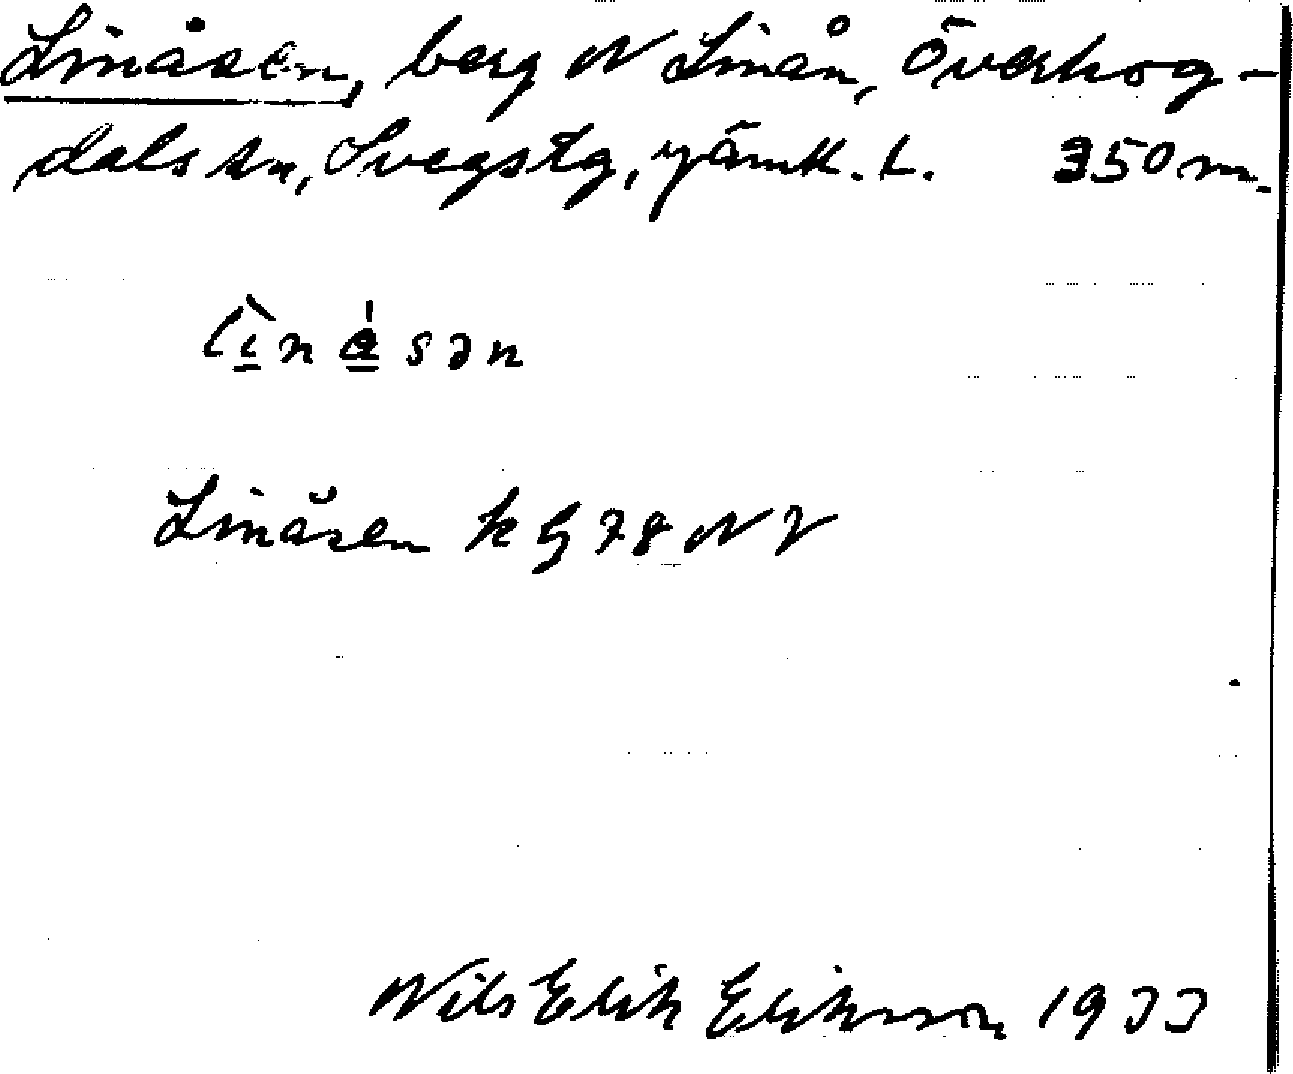 Linåsen, berg N Linån, Överhog-
dals sn, Svegs tg, Jämtl. l. 350 m.
Linåsen k bl 78 NV
Nils Erik Eriksson 1933